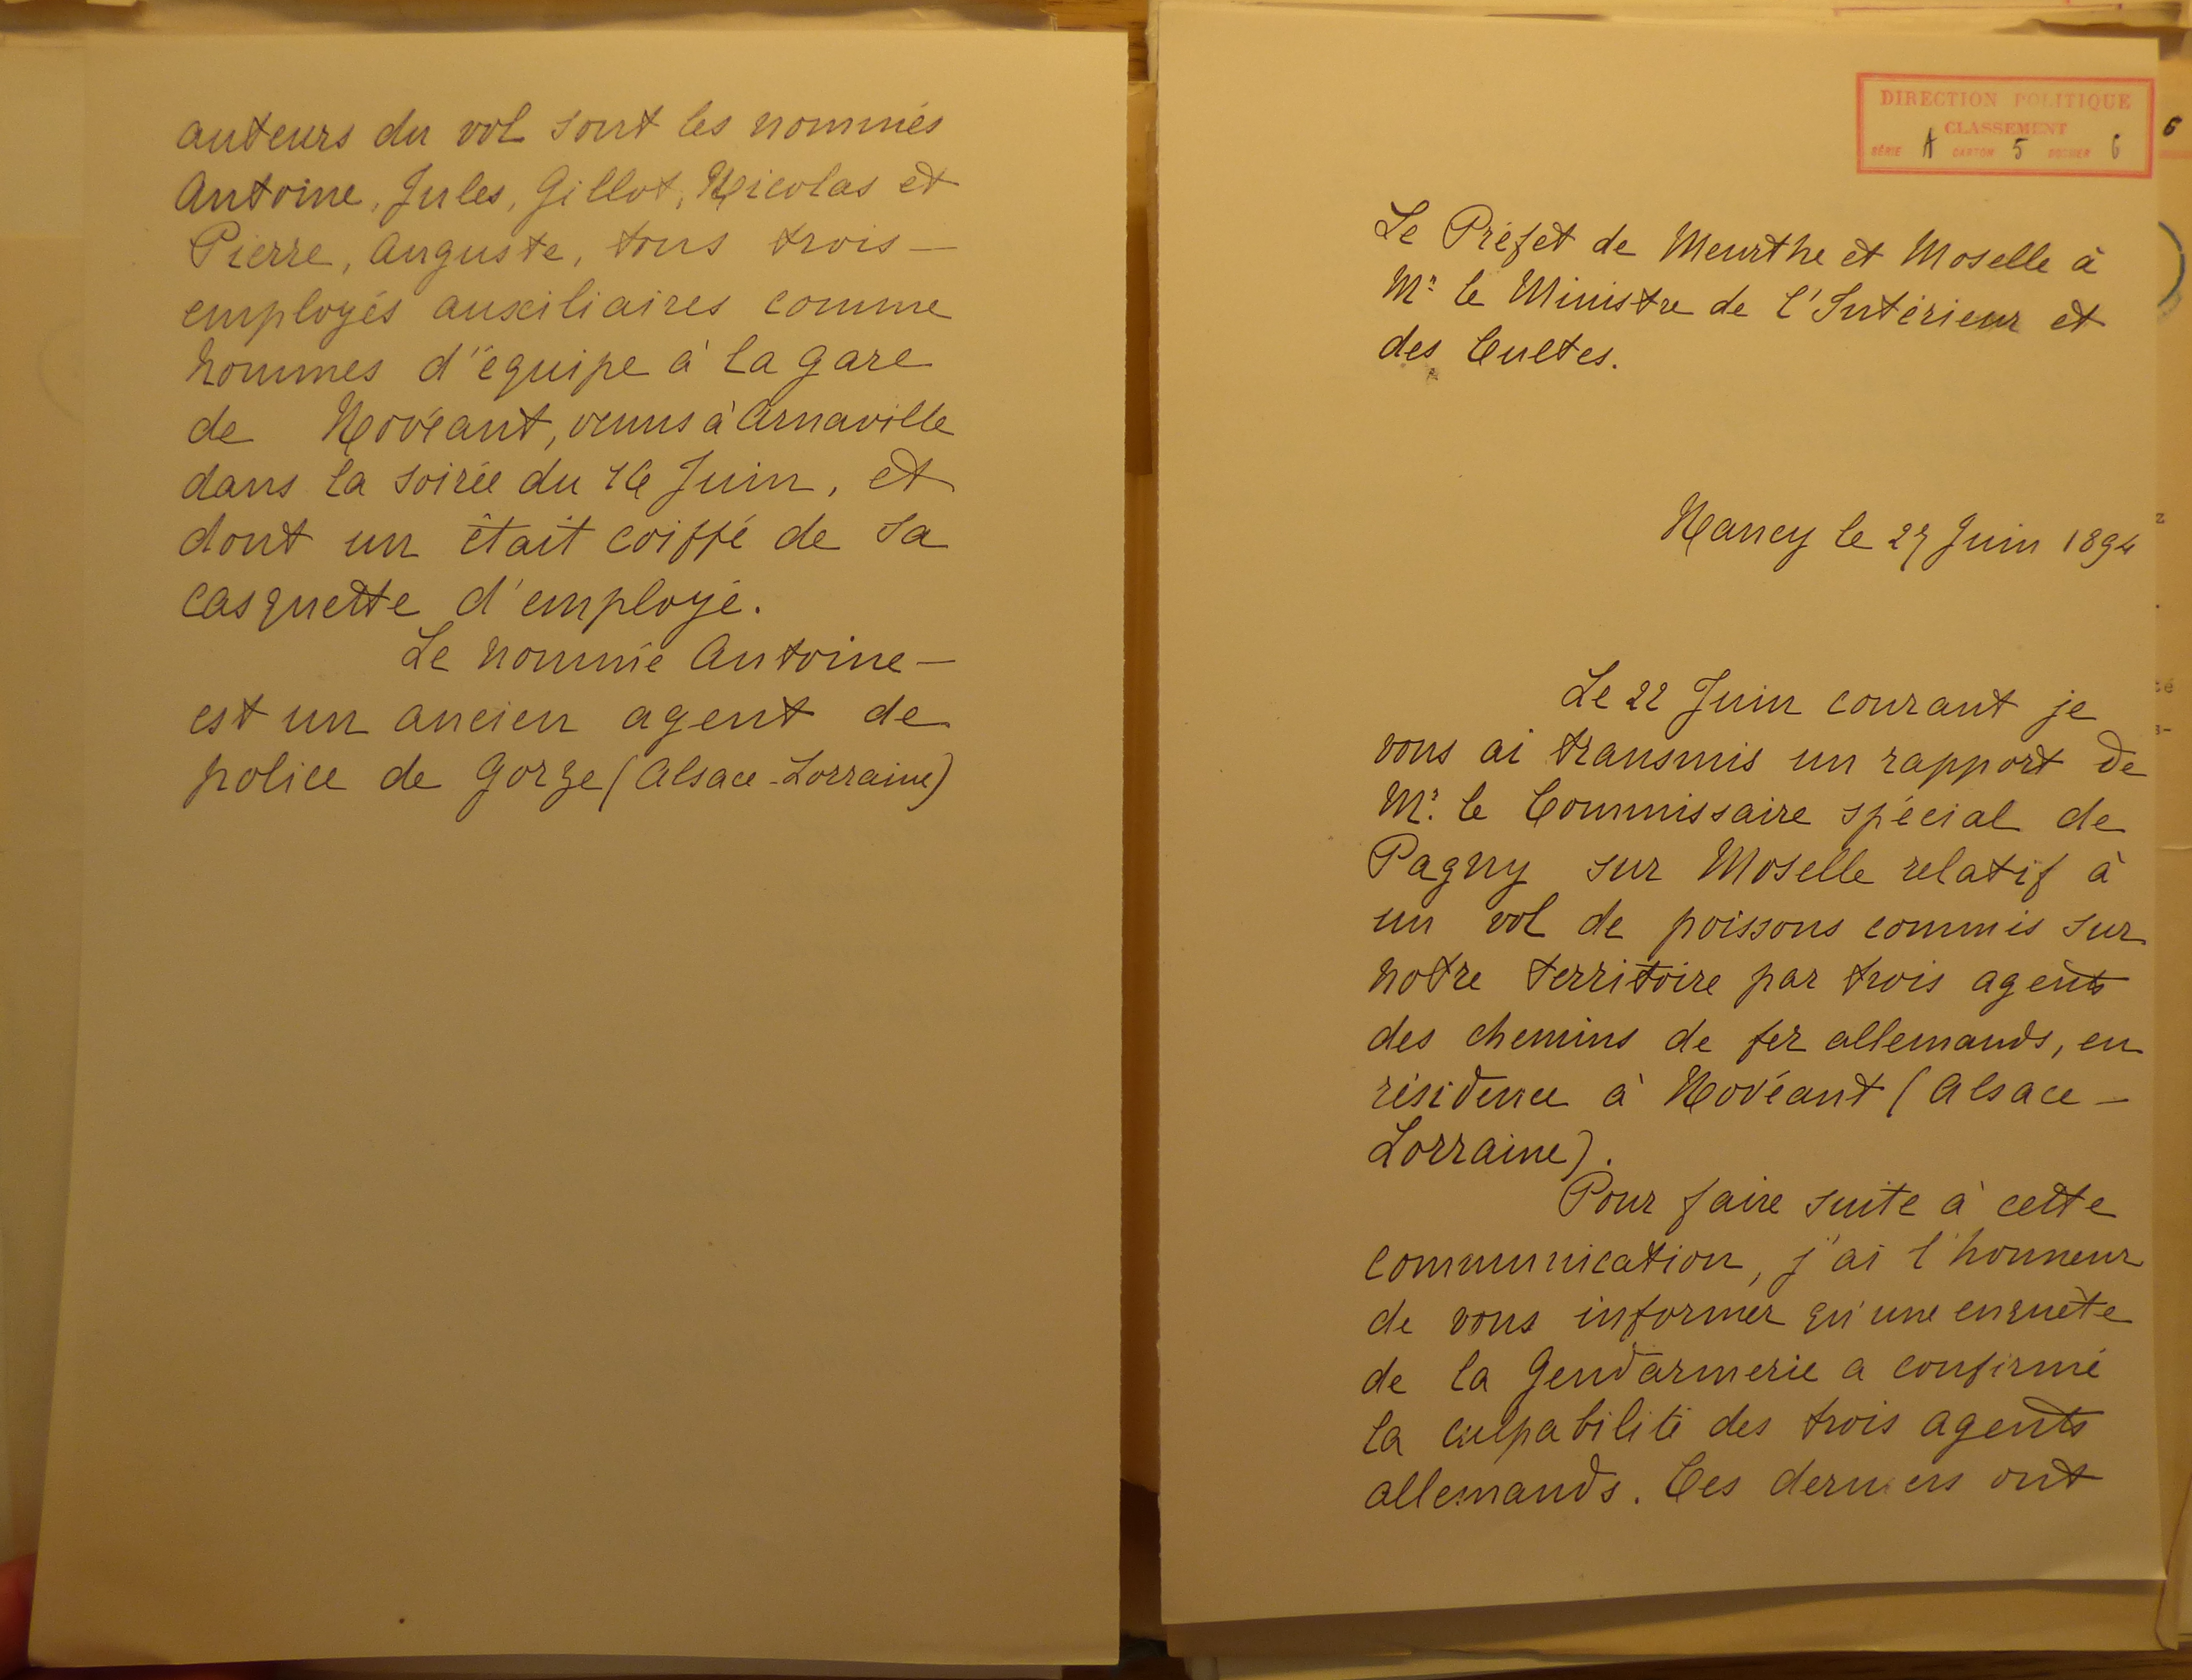 auteurs du vol sont les nommés
Antoine, Jules, Gillot, Nicolas et
Pierre, Auguste, tous trois —
employés auxiliaires comme
hommes d'équipe à la gare
de Novéant, venus à Arnaville
dans la soirée du 16 Juin, et
dont un était coiffé de sa
casquette d'employé.
Le nommé Antoine —
est un ancien agent de
police de Gorze (Alsace-Lorraine)
DIRECTION POLITIQUE
CLASSEMENT
SÉRIE A CARTON 5 DOSSIER 6
6
Le Préfet de Meurthe et Moselle à
Mr le Ministre de l'Intérieur et
des Cultes.
Nancy le 27 Juin 1894
Le 22 Juin courant je
vous ai transmis un rapport de
Mr. le Commissaire spécial de
Pagny sur Moselle relatif à
un vol de poissons commis sur
notre territoire par trois agents
des chemins de fer allemands, en
résidence à Novéant (Alsace —
Lorraine).
Pour faire suite à cette
communication, j'ai l'honneur
de vous informer qu'une enquête
de la Gendarmerie a confirmé
la culpabilité des trois agents
allemands. Ces derniers ont